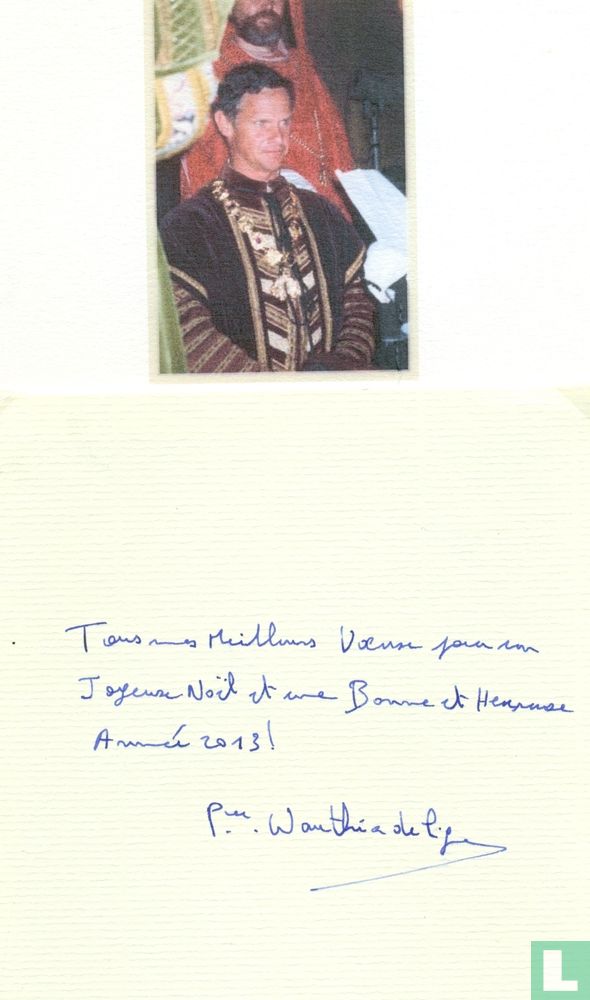 Tous mes Meilleurs Vœux pour un
Joyeux Noël et une Bonne et Heureuse
Année 2013!
Pce. Wauthier de Ligne
L